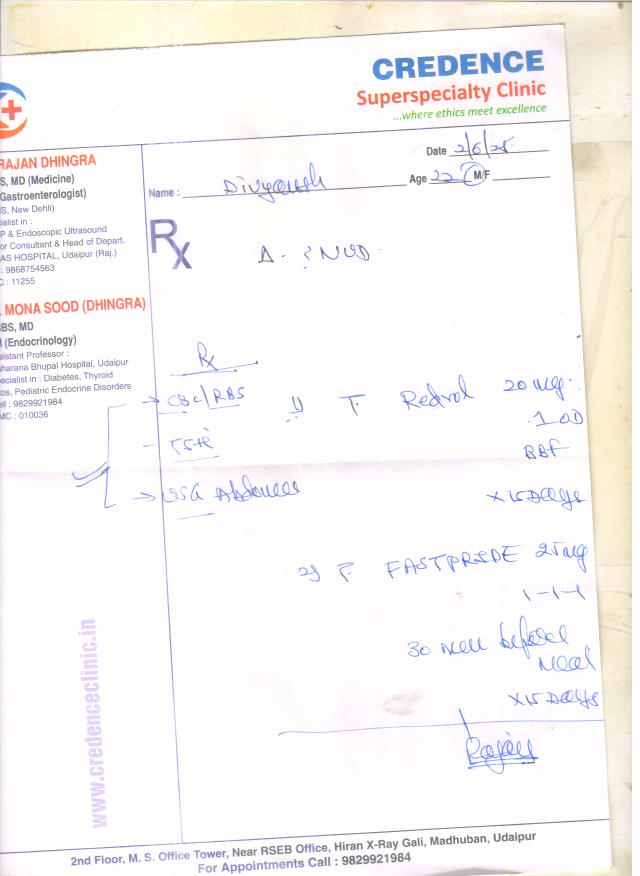 CREDENCE
Superspecialty Clinic
...where ethics meet excellence
RAJAN DHINGRA
S, MD (Medicine)
Gastroenterologist)
S, New Dehli)
ialist in :
P & Endoscopic Ultrasound
or Consultant & Head of Depart.
AS HOSPITAL, Udaipur (Raj.)
: 9868754563
C : 11255
. MONA SOOD (DHINGRA)
BS, MD
(Endocrinology)
istant Professor :
harana Bhupal Hospital, Udaipur
pecialist in : Diabetes, Thyroid
os, Pediatric Endocrine Disorders
ll : 9829921984
MC : 010036
www.credenceclinic.in
Date 2/6/25
Name : Divyansh Age 22 M/F
Rx
Δ - ? NUD
Rx
→ CBC/RBS
→ USG Abdomen
1) T. 20 mg
1 OD
BBF
x 15 Days
2) T. FASTPRIDE 25 mg
1-1-1
30 min before
meal
x 15 Days
Rajan
2nd Floor, M. S. Office Tower, Near RSEB Office, Hiran X-Ray Gali, Madhuban, Udaipur
For Appointments Call : 9829921984